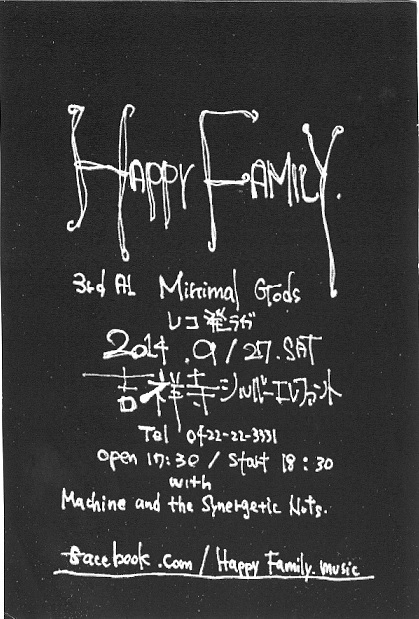 HAPPY FAMILY.
3rd AL Minimal Gods
レコ発ライブ
2014.9/27.SAT
吉祥寺シルバーエレファント
Tel 0422-22-3331
open 17:30 / Start 18:30
with
Machine and the Synergetic Nuts.
facebook.com/Happy Family.music